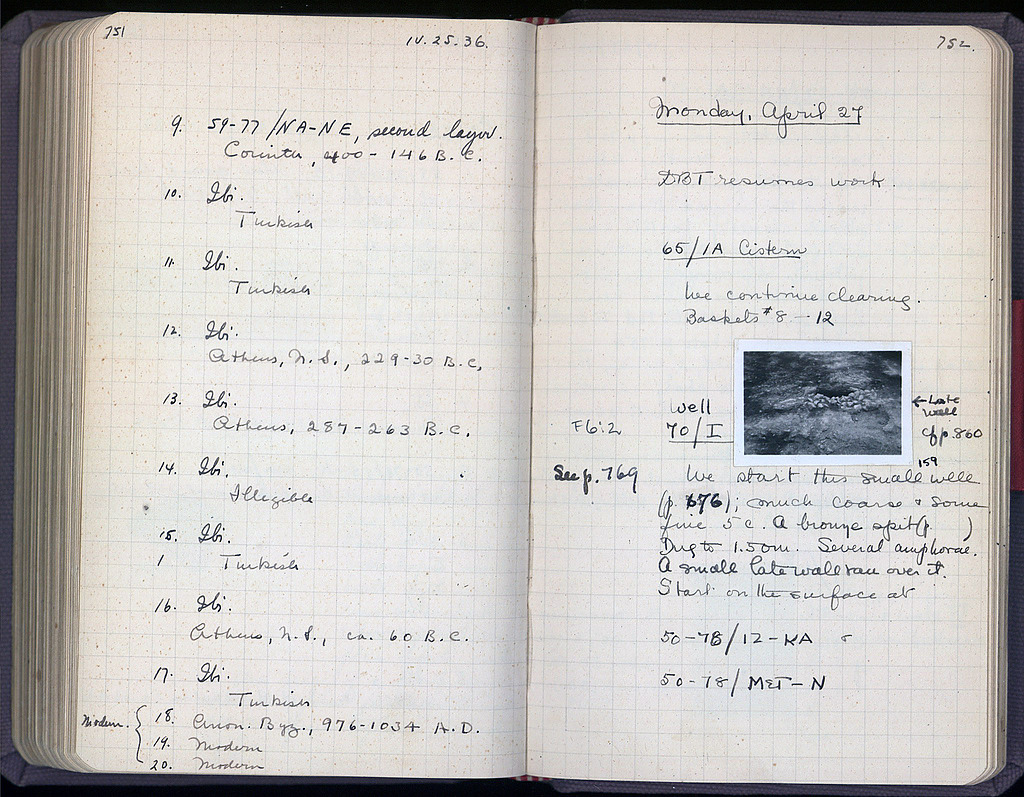 751
IV. 25. 36.
9. 59-77/NA-NE, second layer.
Corinth, 400 - 146 B.C.
10. Ibi.
Turkish
11. Ibi.
Turkish
12. Ibi.
Athens, N.S., 229-30 B.C.
13. Ibi.
Athens, 287-263 B.C.
14. Ibi.
Illegible
15. Ibi.
1 Turkish
16. Ibi.
Athens, N.S., ca. 60 B.C.
17. Ibi.
Turkish
Modern. { 18. Anon. Byz., 976-1034 A.D.
19. Modern
20. Modern
752.
Monday, April 27
DBT resumes work.
65/IA Cistern
We continue clearing.
Baskets #8 - 12
← Late
well
cf p. 860
Well
F6:2 70/I
159
See p. 769 We start this small well
(p. 676); much coarse & some
fine 5 c. A bronze spit (p. )
Dug to 1.50m. Several amphorae.
A small late wall ran over it.
Start on the surface at
50-78/12-KA
50-78/MET-N